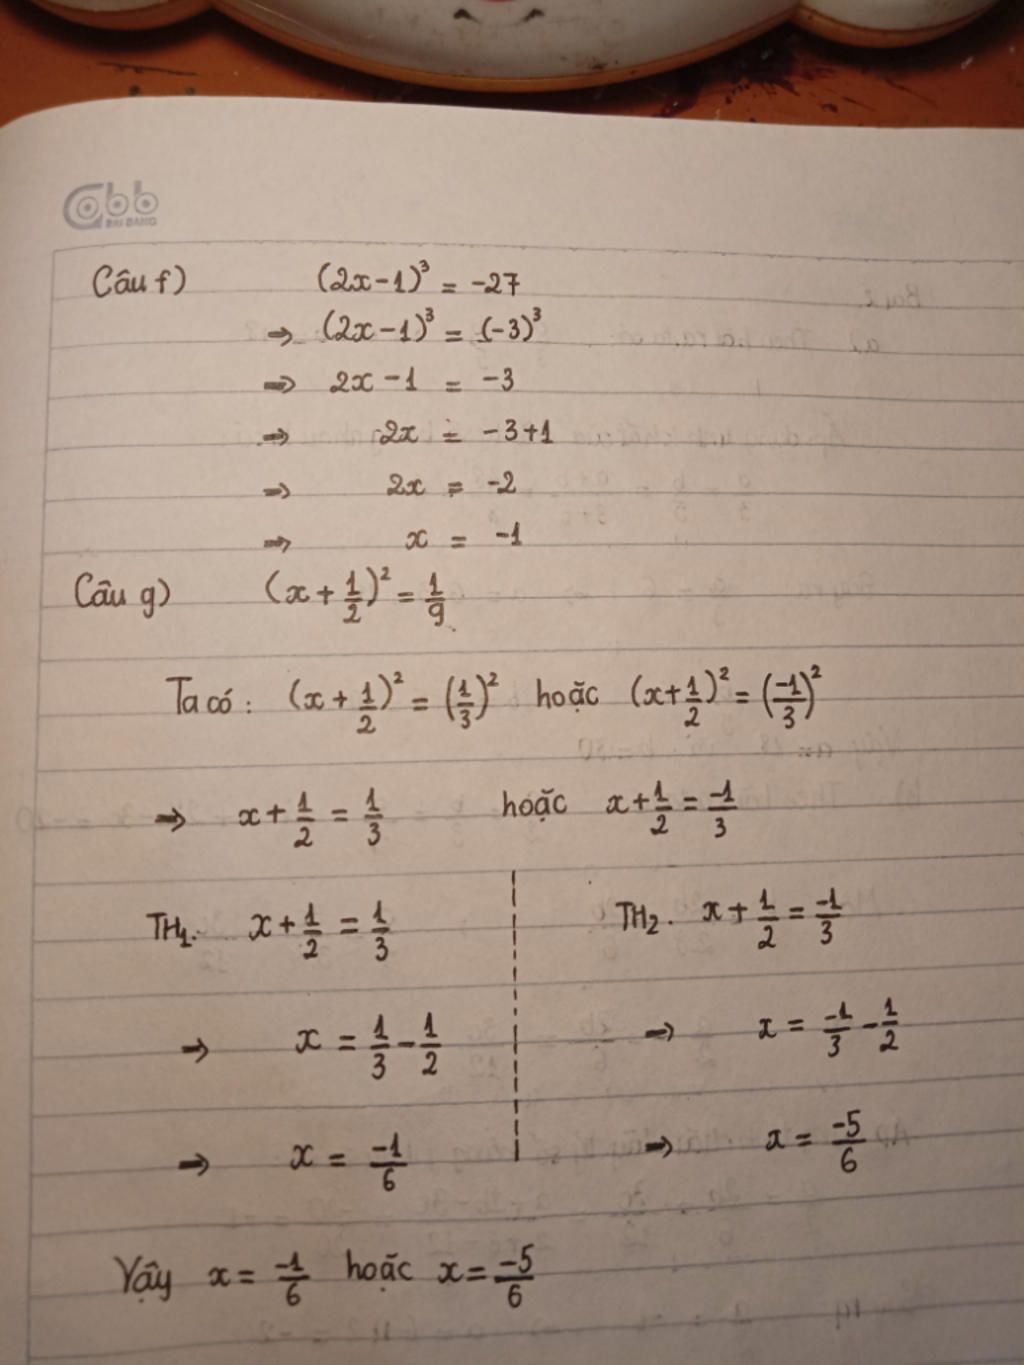 abb
BAI BANG
Câu f) (2x-1)³ = -27
⇒ (2x-1)³ = (-3)³
⇒ 2x-1 = -3
⇒ 2x = -3+1
⇒ 2x = -2
⇒ x = -1
Câu g) (x + 1/2)² = 1/9
Ta có: (x + 1/2)² = (1/3)² hoặc (x + 1/2)² = (-1/3)²
⇒ x + 1/2 = 1/3 hoặc x + 1/2 = -1/3
TH1. x + 1/2 = 1/3 TH2. x + 1/2 = -1/3
⇒ x = 1/3 - 1/2 ⇒ x = -1/3 - 1/2
⇒ x = -1/6 ⇒ x = -5/6
Vậy x = -1/6 hoặc x = -5/6